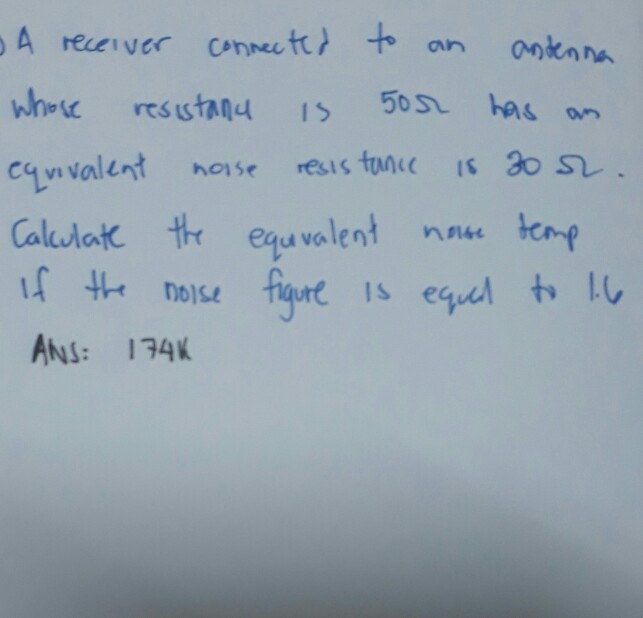 ) A receiver connected to an antenna
whose resistance is 50Ω has an
equivalent noise resistance is 30 Ω.
Calculate the equivalent noise temp
if the noise figure is equal to 1.6
ANS: 174K